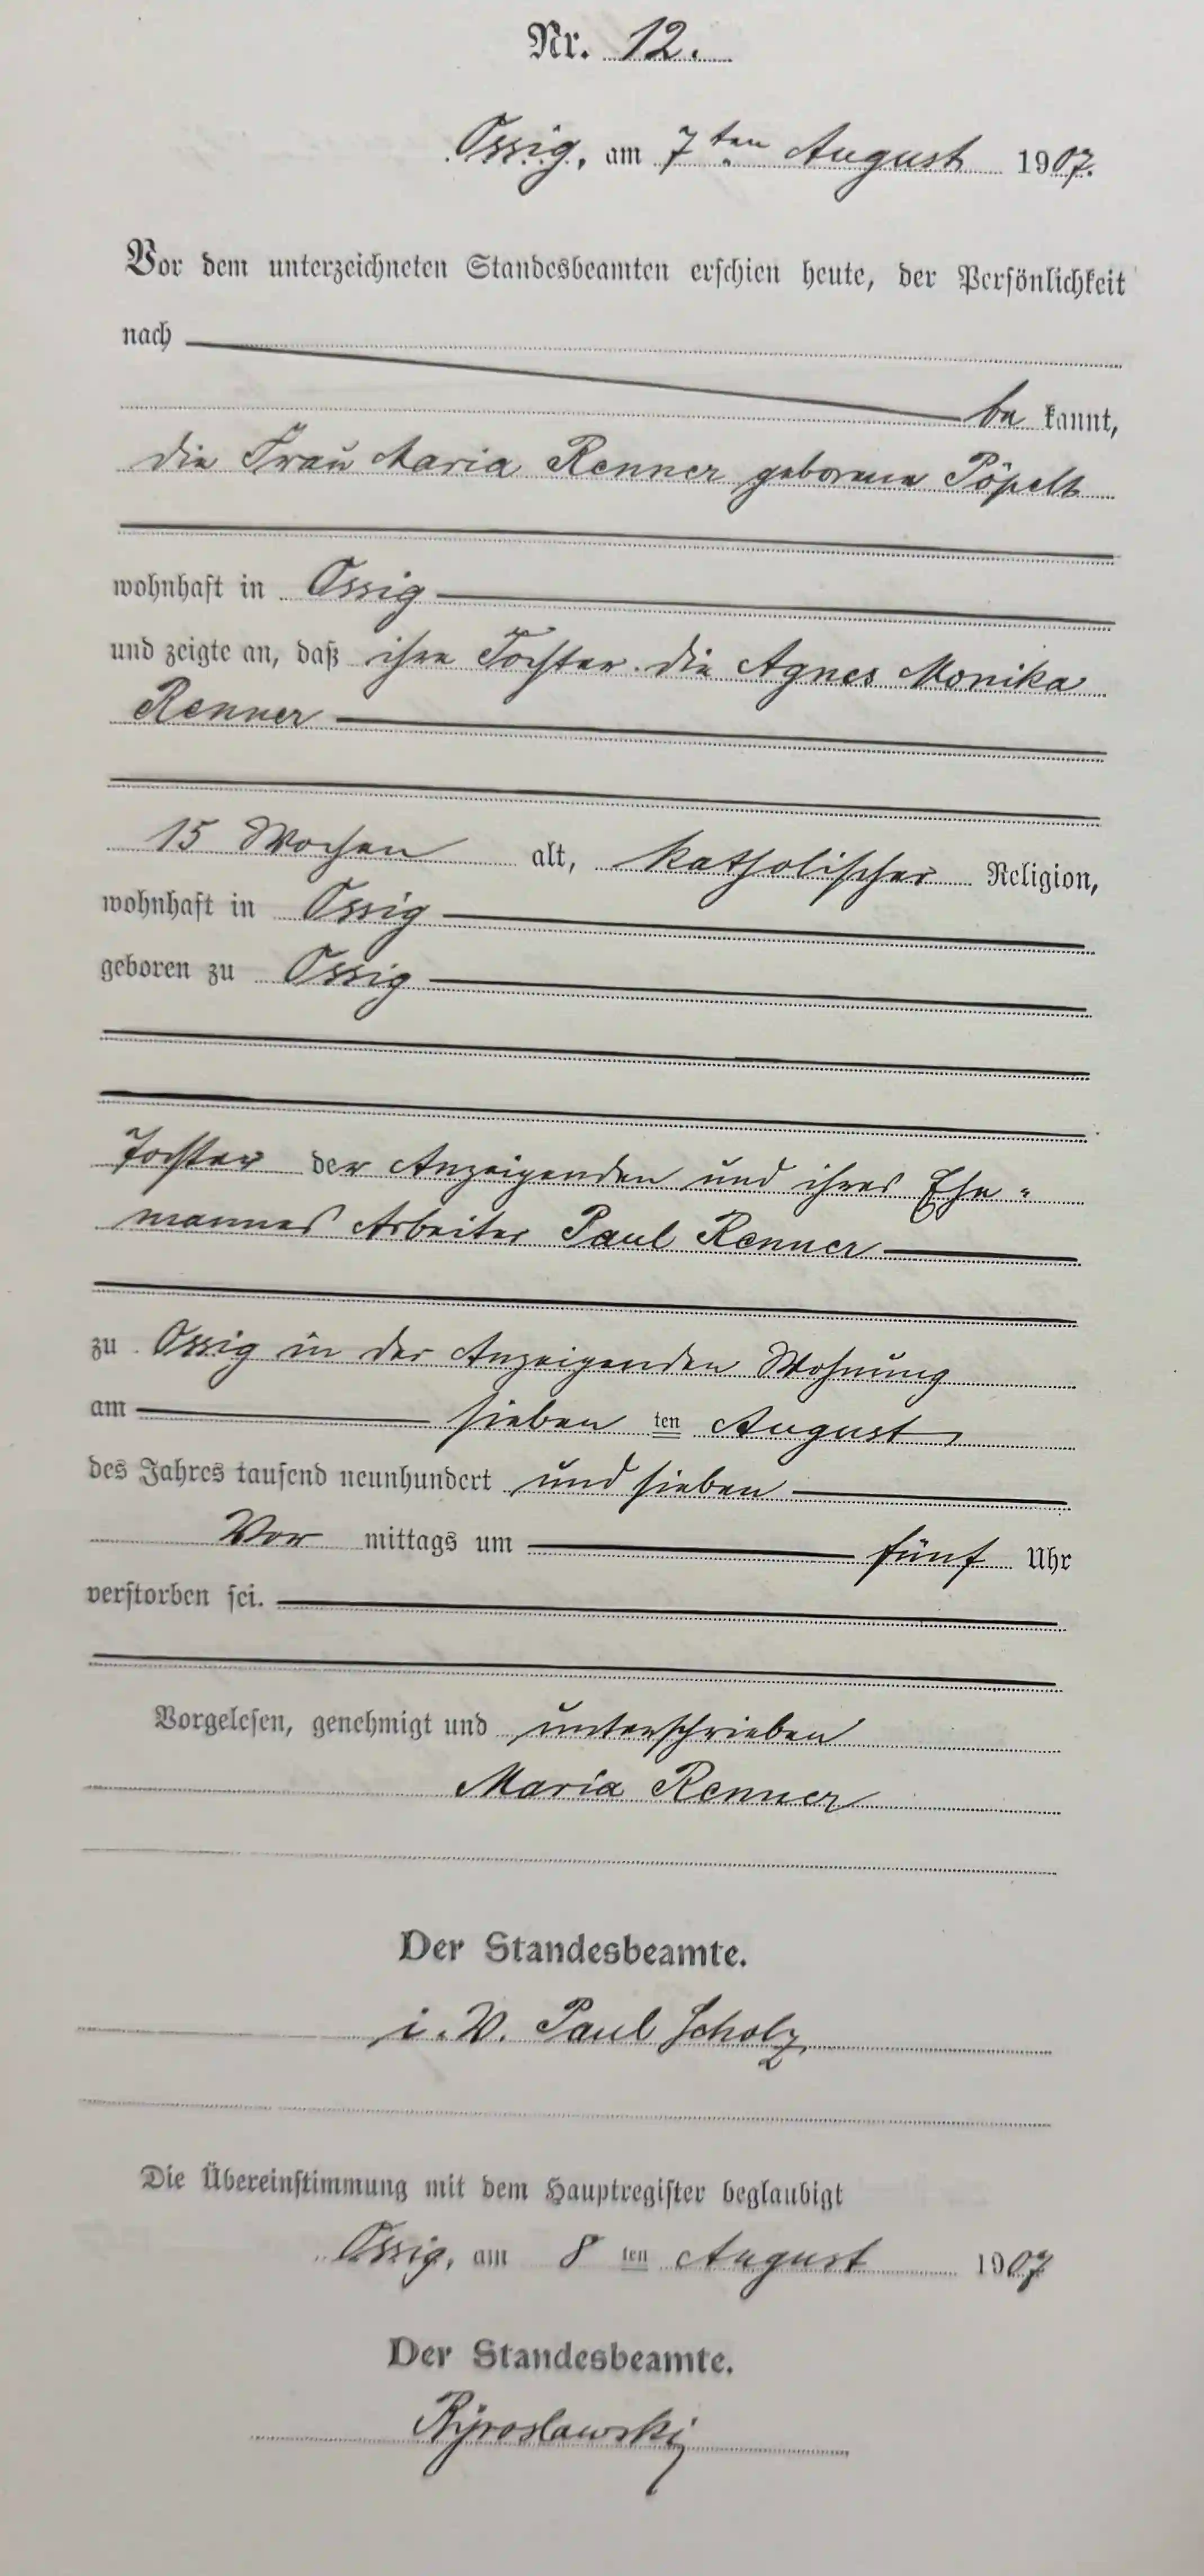 Nr. 12.
Ossig, am 7ten August 1907.
Vor dem unterzeichneten Standesbeamten erschien heute, der Persönlichkeit
nach
be kannt,
die Frau Maria Renner geborene Pöpelt
wohnhaft in Ossig
und zeigte an, daß ihre Tochter die Agnes Monika
Renner
15 Wochen alt, katholischer Religion,
wohnhaft in Ossig
geboren zu Ossig
Tochter der Anzeigenden und ihres Ehe-
mannes Arbeiter Paul Renner
zu Ossig in der Anzeigenden Wohnung
am sieben ten August
des Jahres tausend neunhundert und sieben
Vor mittags um fünf Uhr
verstorben sei.
Vorgelesen, genehmigt und unterschrieben
Maria Renner
Der Standesbeamte.
i. V. Paul Scholz
Die Übereinstimmung mit dem Hauptregister beglaubigt
Ossig, am 8 ten August 1907
Der Standesbeamte.